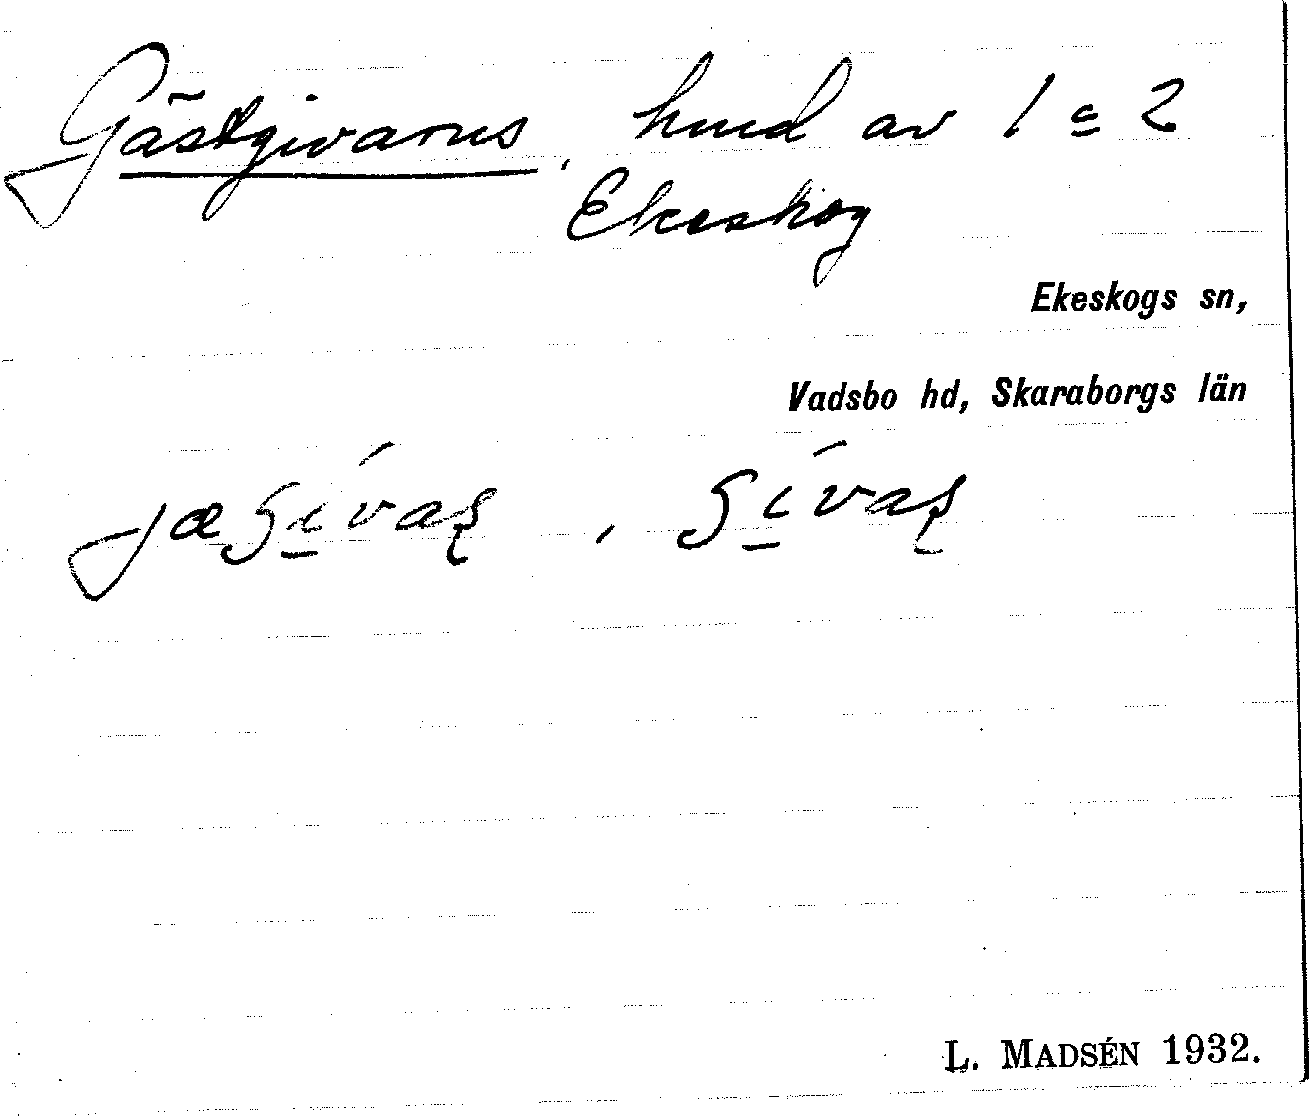 Gästgivarns, hmd av 1 c 2
Ekeskog
Ekeskogs sn,
Vadsbo hd, Skaraborgs län
L. MADSÉN 1932.